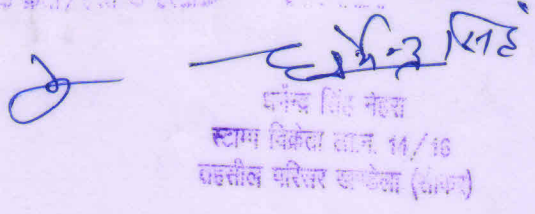 धर्मेन्द्र सिंह
धर्मेन्द्र सिंह नेहरा
स्टाम्प विक्रेता ला.न. 14/16
तहसील परिसर खण्डेला (सीकर)